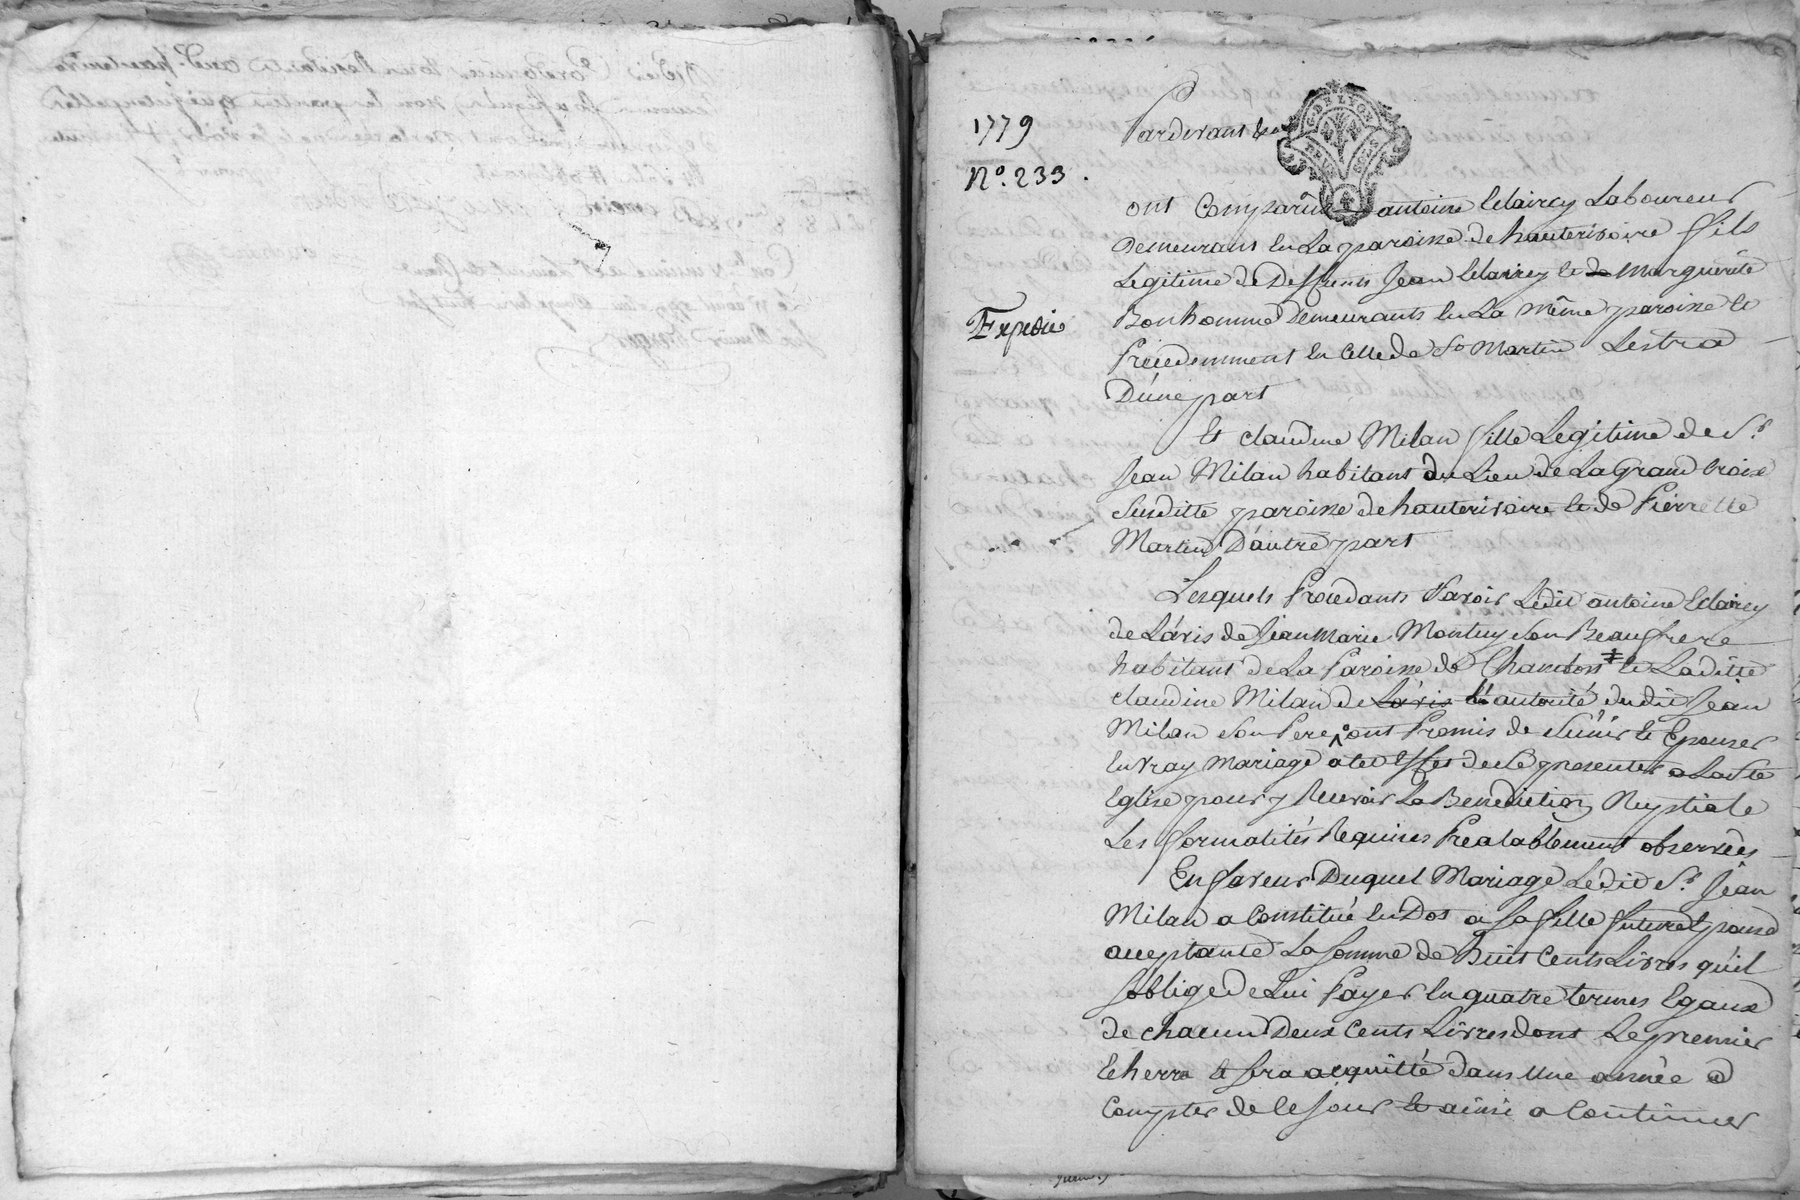 1779
N.º 233.
Expedié
Pardevant
G. DE LYON
DEUX SOLS
ont Comparûs antoine Eclaircy Laboureur
Demeurant En La paroisse de hauterivoire fils
Legitime de Deffunts Jean Eclaircy et de Marguerite
Bonhomme Demeurants En La même paroisse et
Precedemment En Celle de St Martin Lestra
D'une part
Et claudine Milan fille Legitime de Sr.
Jean Milan habitant du Lieu de La Grand Croix
Susditte paroisse de hauterivoire et de Pierrette
Martin D'autre part
Lesquels Procedants Savoir Ledit antoine Eclaircy
de L'avis de Jean Marie Montuy son Beaufrere
habitant de La Paroisse de Chambost et Laditte
claudine Milan de L'avis et autorité dudit Jean
Milan son Pere, ont Promis de S'unir et Epouser
En vray Mariage a cet Effet de se presenter a La Ste
Eglise pour y Recevoir La Benediction Nuptiale
Les formalités Requises Prealablement observées
En faveur Duquel Mariage Ledit Sr. Jean
Milan a Constitué En Dot a Sa fille future Epouse
acceptante La somme de Huit Cents Livres qu'il
s'oblige de Lui Payer En quatre termes Egaux
de chacun Deux Cents Livres dont Le premier
Echerra et sera acquitté dans Une année a
Compter de Ce Jour et ainsi a Continuer